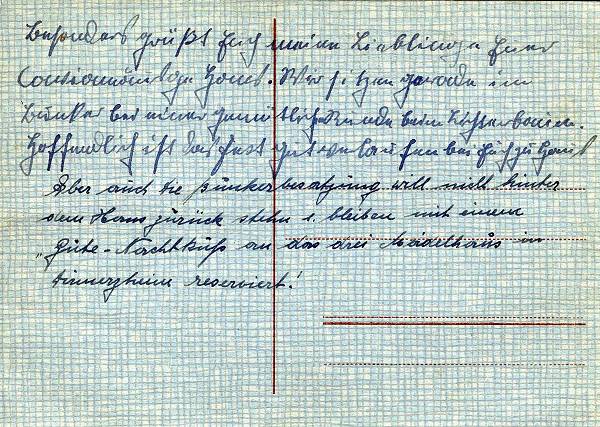 Besonders grüßt Euch meine Lieblinge Euer
Hans. Wir sitzen gerade im
Bunker bei einer gemütlichen Runde beim
Hoffendlich ist das Fest gut verlaufen bei Euch zu Haus
Aber auch die Bunkerbesatzung will nicht hinter
dem Hans zurück stehn u. bleiben mit einem
„Gute-Nachtkuß an das drei Mädelhaus in
reserviert!